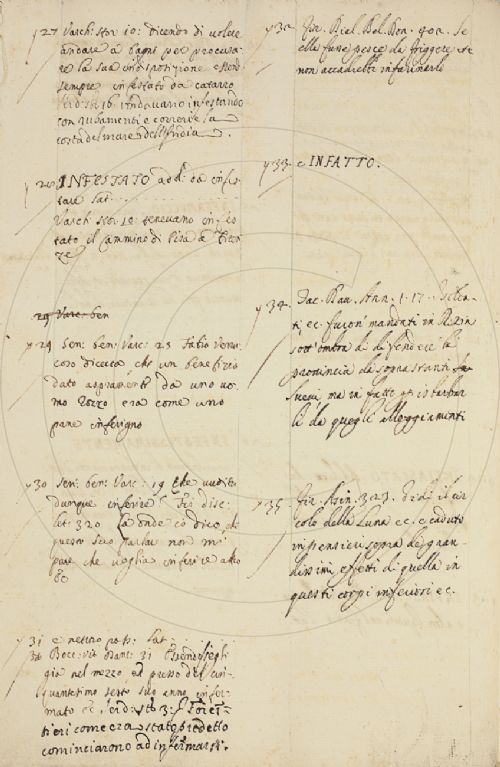 27 Varch: stor: 10: dicendo di volere
andare a bagni per procurar
la sua indisposizione essendo
sempre infestato da catarro
Serd: st: 16 andavano infestando
con rubamenti e correrie la
costa del mare dell'India.
28 INFESTATO add: da infes-
tare Lat. . . . .
Varch: stor: 10: tenevano infes-
tato il cammino di Pisa a Firen
ze
29 Varc: ben
29 Sen: ben: Varc: 23 Fabio Verru
coso diceva, che un benefizio
dato aspramente da uno uo
mo rozzo era come uno
pane inferigno
30 Sen: ben: Varc: 19 Che vuoi tu
dunque inferire?
let: 320 La onde io dico, che
questo suo parlar non mi
pare che voglia inferire altro
&c
31 e neutro pass: Lat . . .
Bocc: vit. Dant: 31 Essendo egli
già nel mezzo, o presso del cin-
quantesimo sesto suo anno infer-
mato &c Serd: sto: 3: I Fores-
tieri come era stato predetto
cominciarono ad infermarsi.
32 Fir. Rad. Bel. Don. 402. Se
ella fusse pesce da friggere
non accadrebbe infarinarla
33 e INFATTO.
34 Tac. Dav. Ann. 1. 17.
ti ec. furon' mandati in
sott'ombra di difendere la
provincia da soprastanti
Suevi, ma in fatto
li da quegli alloggiamenti
35 Fir. Asin. 323. il cir
colo della Luna ec. e caduto
in pensieri sopra de gran-
dissimi effetti di quella in
questi corpi inferiori ec.